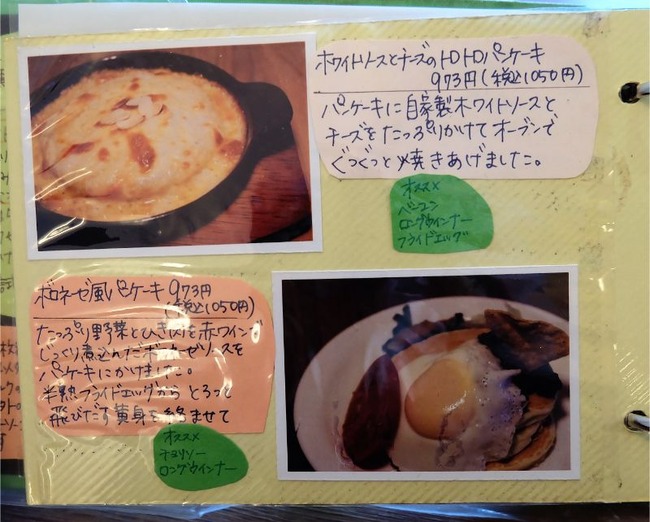 ホワイトソースとチーズのトロトロパンケーキ
973円(税込1050円)
パンケーキに自家製ホワイトソースと
チーズをたっぷりかけてオーブンで
ぐつぐつと焼きあげました。
オススメ
ベーコン
ロングウインナー
フライドエッグ
ボロネーゼ風パンケーキ 973円
(税込1050円)
たっぷり野菜とひき肉を赤ワインで
じっくり煮込んだボロネーゼソースを
パンケーキにかけました。
半熟フライドエッグから とろっと
飛びだす黄身を絡ませて
オススメ
チョリソー
ロングウインナー